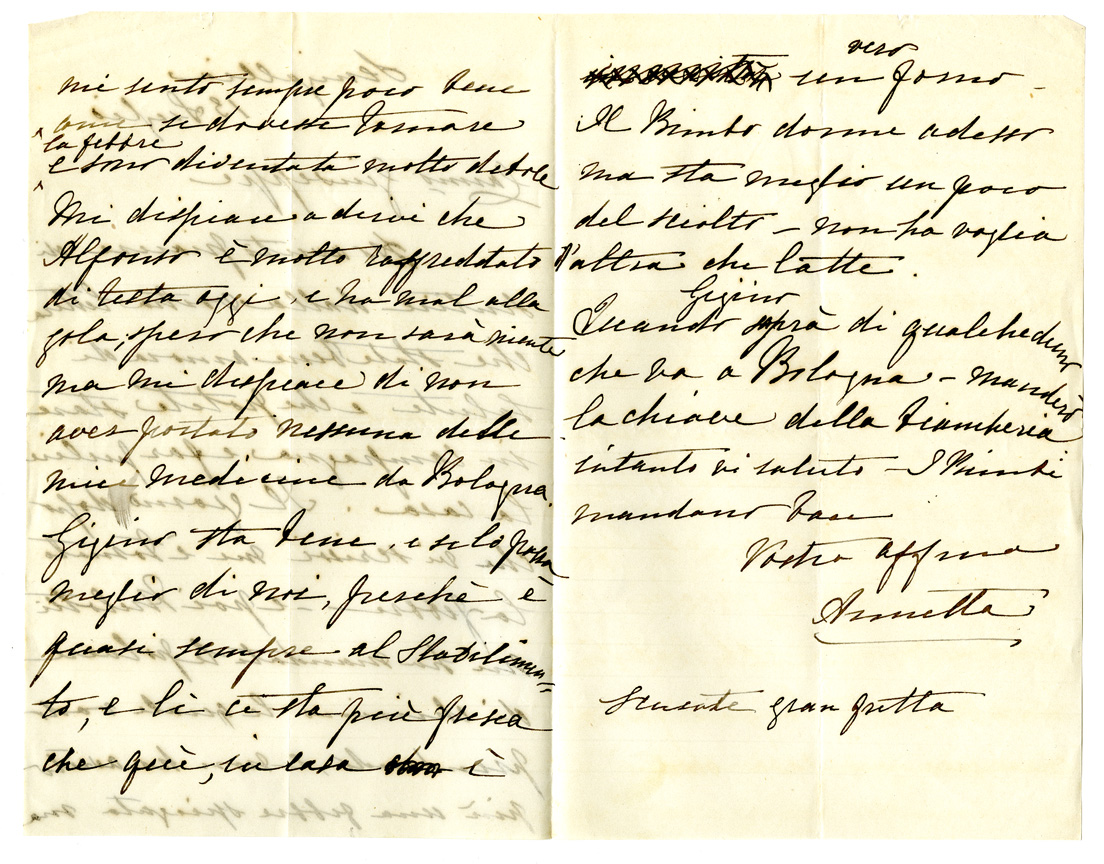 mi sento sempre poco bene
come se dovesse tornare
la febbre
e sono diventata molto debole
Mi dispiace a dirvi che
Alfonso è molto raffreddato
di testa oggi, e ha mal alla
gola, spero che non sarà niente
ma mi dispiace di non
aver portato nessuna delle
mie medicine da Bologna.
Gigino sta bene, e se la passa
meglio di noi, perchè è
quasi sempre al Stabilimen=
to, e li ci sta più fresca
che quì, in casa è
vero
un forno -
Il Bimbo dorme adesso
ma sta meglio un poco
del sciolto - non ha voglia
d'altra che latte.
Gigino
Quando saprà di qualchedun
che va a Bologna - manderò
la chiave della biancheria
intanto vi saluto - I Bimbi
mandano baci
Vostra affma
Annetta
Scusate gran fretta